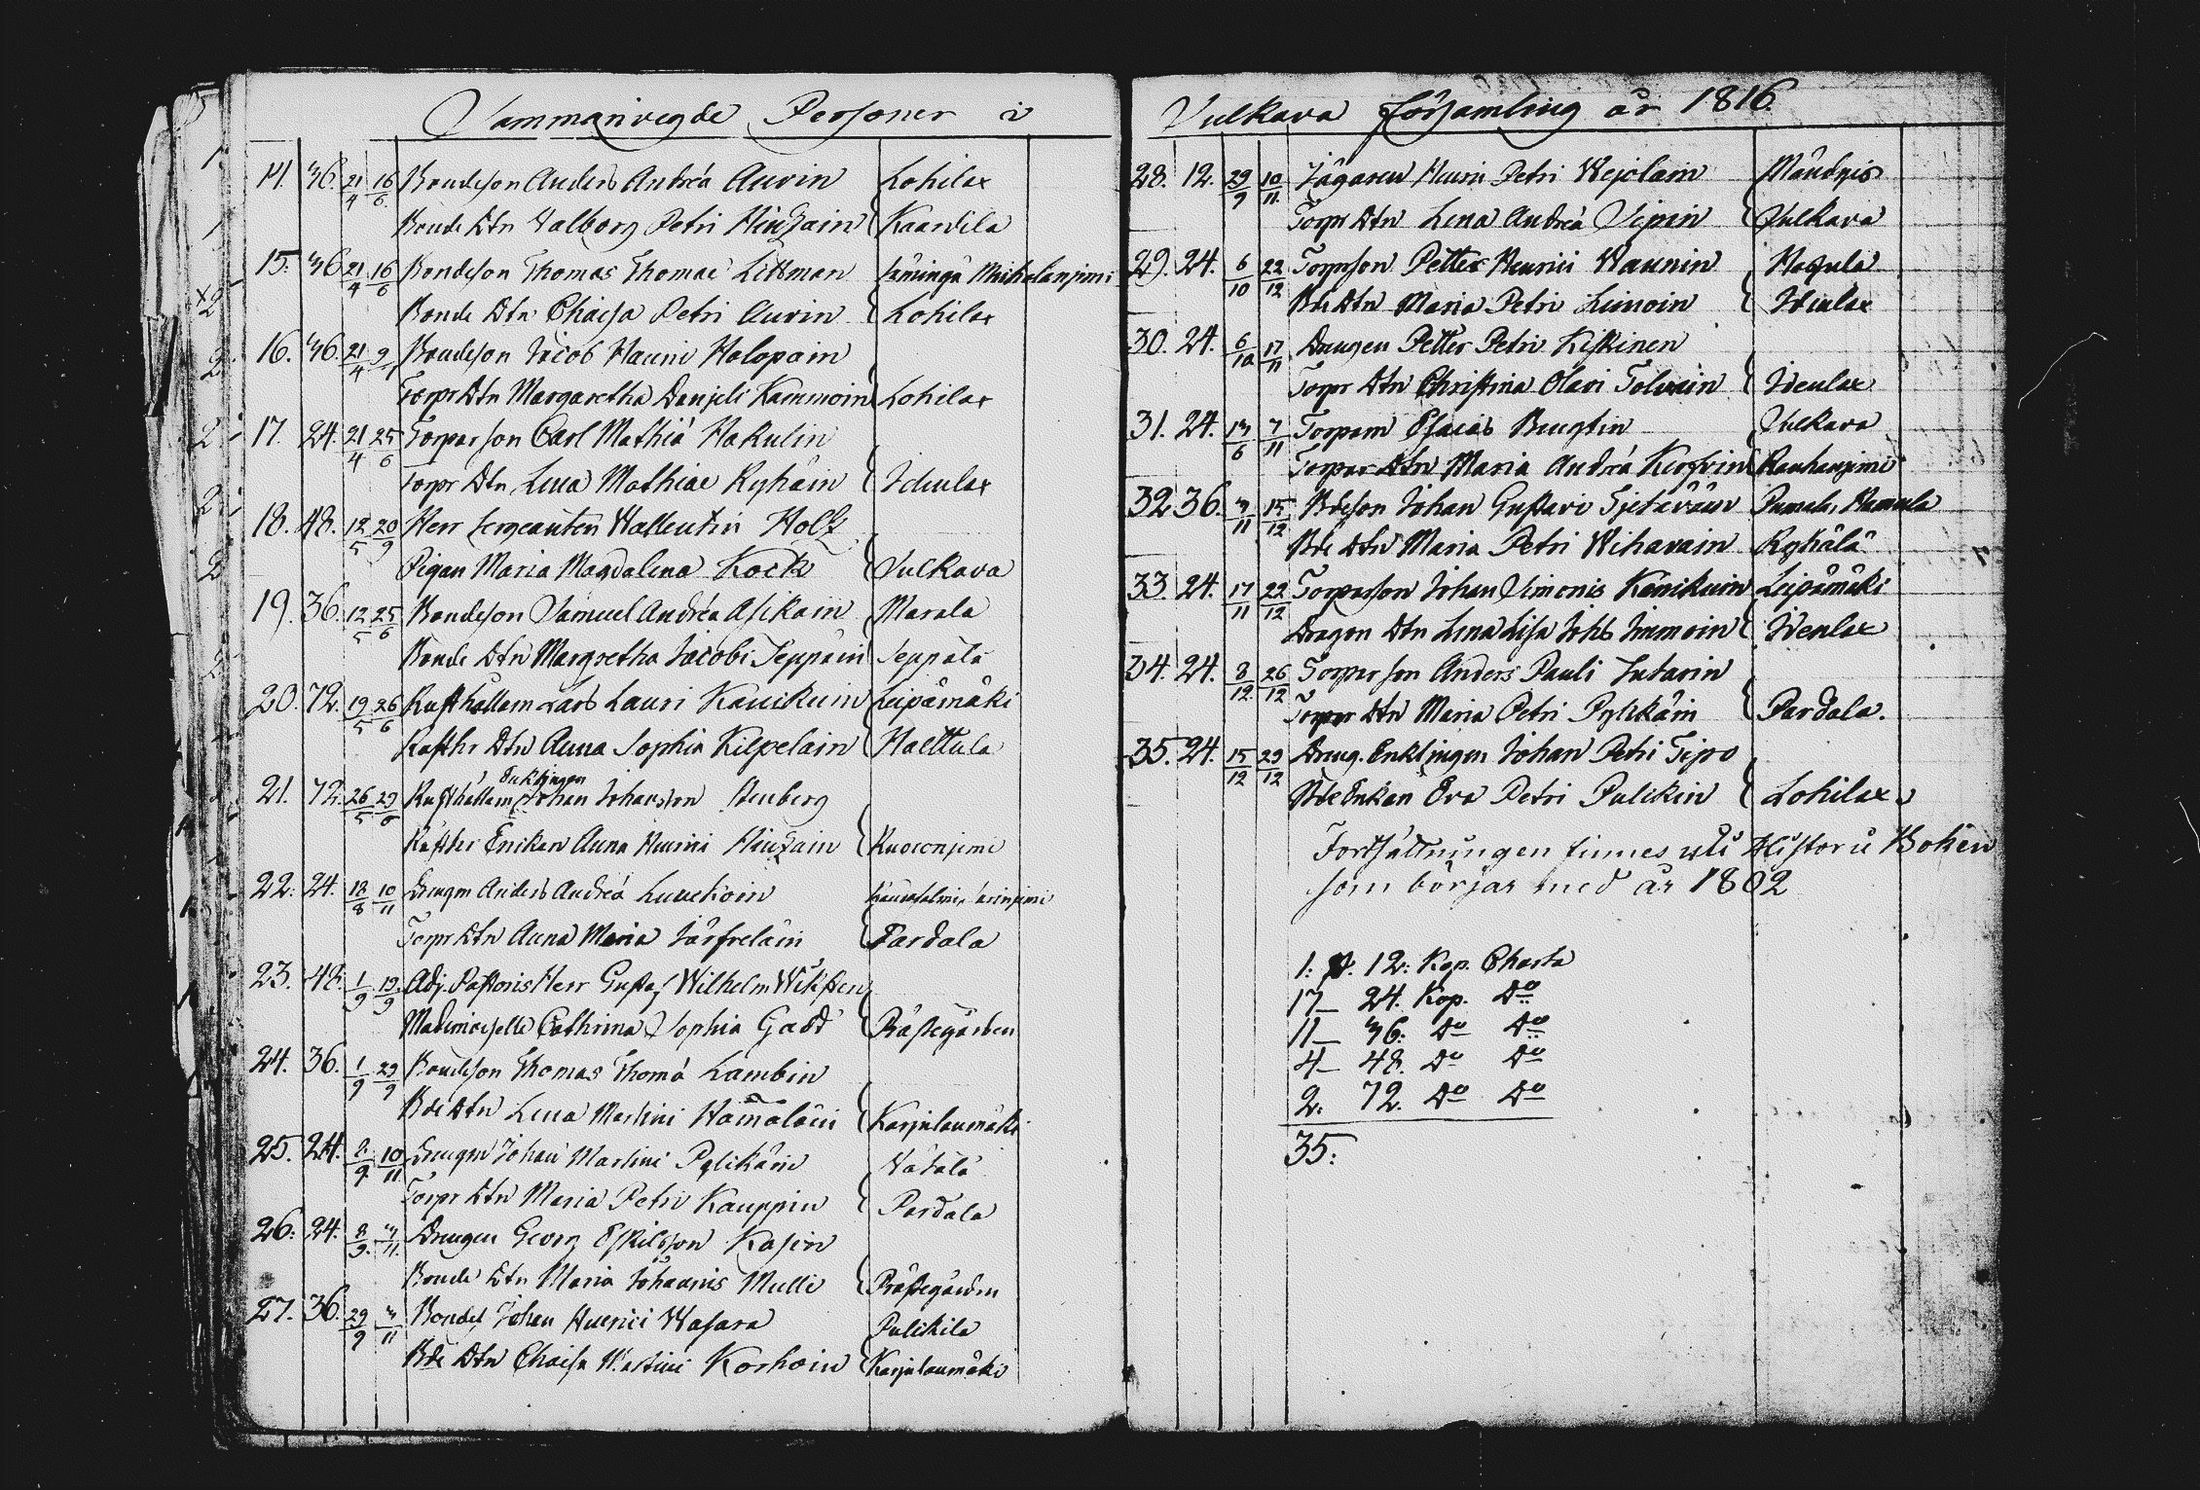 Sammanvigde Personer i
14. 36. 21/4 16/6 Bondeson Anders Andreæ Auvin Lohilax
Bonde Dtn Valborg Petri Hintzain Kaartila
15. 36 21/4 16/6 Bondeson Thomas Thomæ Littman Säminge
Bonde Dtn Chaisa Petri Auvin Lohilax
16. 36. 21/4 9/7 Bondeson Jacob Holopain
Torpr Dtn Margaretha Danjeli Kammoin Lohilax
17. 24. 21/4 25/6 Torparson Carl Mathiæ Hakulin
Torpr Dtn Lena Mathiae Ryhäin Idenlax
18. 48. 12/5 20/9 Herr Sergeanten Wallentin Holtz
Pigan Maria Magdalena Kock Sulkava
19. 36. 12/5 25/6 Bondeson Samuel Andreæ Asikain Marala
Bonde Dtn Margretha Jacobi Seppäin Seppälä
20. 72. 19/5 26/6 Rusthållarn Lars Lauri Kauikuin Leipämäki
Rusthr Dtn Anna Sophia Kilpelain Halttula
Enklingen
21. 72. 26/5 29/6 Rusthållarn Johan Johansson Stenberg
Rusthr Enkan Anna Henrici Hintzain Ruoconjemi
22. 24. 18/8 10/11 Drengen Anders Andreæ
Torpr Dtn Anna Maria Järfveläin Pardala
23. 48. 1/9 19/9 Adj. Pastoris Herr Gustaf Wilhelm Wiksten
Mademoiselle Cathrina Sophia Gadd Prästegården
24. 36. 1/9 29/9 Bondeson Thomas Thomæ Lambin
Bde Dtn Lena Martini Hämäläin Karjulanmäki
25. 24. 8/9 10/11 Drengen Johan Martini Pylikäin Vätälä
Torpr Dtn Maria Petri Kauppin Pardala
26. 24. 8/9 3/11 Drengen Georg Eskilsson Kasin
Bonde Dtn Maria Johannis Mulli Prästegården
27. 36. 29/9 3/11 Bonden Johan Henrici Wasara Pulikila
Bde Dtn Chaisa Martini Korhoin Karjulanmäki
Sulkava församling år 1816.
28. 12. 29/9 10/11 Jägaren Henric Petri Wejolain Mäntynis
Torpr Dtn Lena Andreæ Sipin Sulkava
29. 24. 6/10 22/12 Torparson Petter Henrici Waunin
Bde Dtn Maria Petri Limoin Idenlax
30. 24. 6/10 17/11 Drengen Petter Petri Kiskinen
Torpr Dtn Christina Olavi Tolvain Idenlax
31. 24. 13/6 7/11 Torparn Esaias Sulkava
Torpar Dtn Maria Andreæ Kauhanjemi
32. 36. 3/11 15/12 Bdeson Johan Gustavi Pumala, Hamula
Bde Dtn Maria Petri Wihavain Ryhälä
33. 24. 17/11 22/12 Torparson Johan Simonis Känikuin Leipämäki
Dragon Dtn Lena Lisa Johs Immoin Idenlax
34. 24. 8/12 26/12 Torparson Anders Pauli Lutarin
Torpr Dtn Maria Petri Pylikäin Pardala.
35. 24. 15/12 29/12 Dreng. Enklingen Johan Petri Tipo
Bde Enkan Eva Petri Pulikin Lohilax
Fortsättningen finnes uti Historie Boken
som börjas med år 1802
1: à 12: Kop. Charta
17 — 24. Kop. Do
11 — 36: Do Do
4 — 48. Do Do
2: 72. Do Do
35: